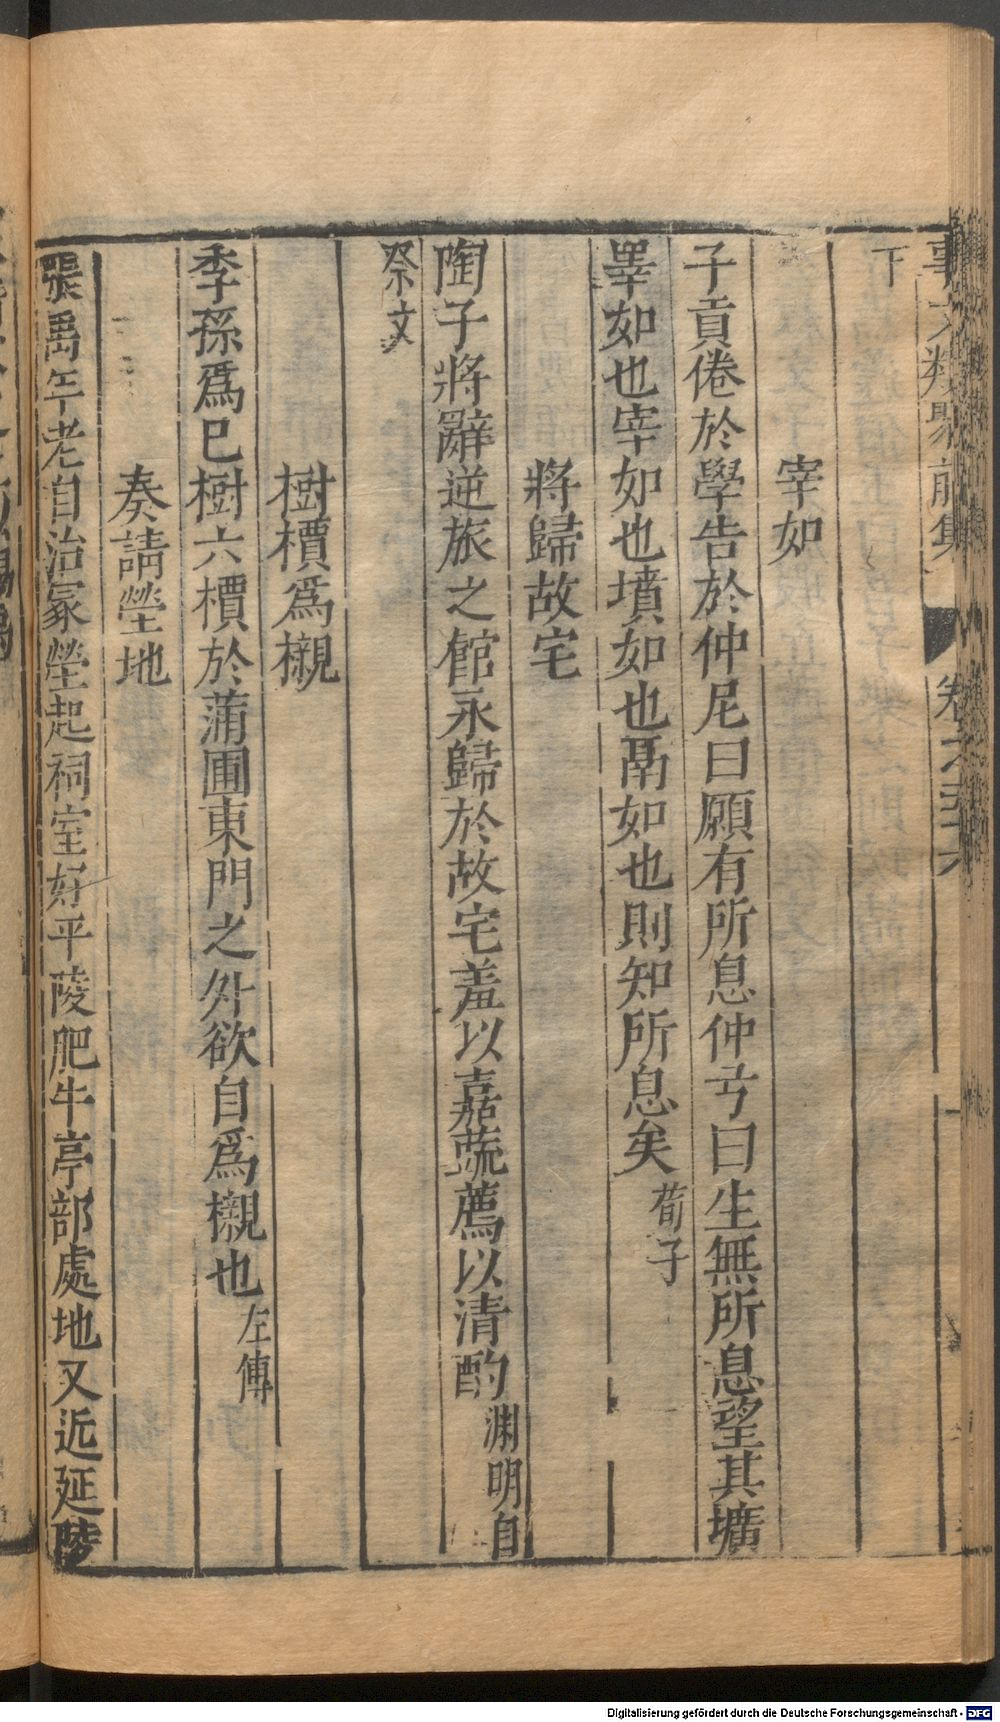 事文類聚前集 卷之五十六
下
宰如
子貢倦於學告於仲尼曰願有所息仲兮曰生無所息望其壙
睪如也宰如也墳如也鬲如也則知所息矣荀子
將歸故宅
陶子將辭逆旅之館永歸於故宅羞以嘉蔬薦以清酌淵明自
祭文
樹檟為櫬
季孫爲已樹六檟於蒲圃東門之外欲自爲櫬也左傳
奏請塋地
張禹年老自治冢塋起祠室好平陵肥牛亭部處地又近延陵
Digitalisierung gefördert durch die Deutsche Forschungsgemeinschaft - DFG